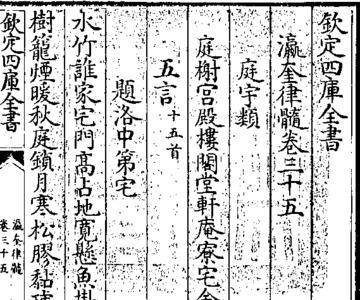 欽定四庫全書
瀛奎律髓卷三十五
庭宇類
庭榭宮殿樓閣堂軒庵寮宅舍
五言十五首
題洛中第宅
水竹誰家宅門高占地寬懸魚掛
樹籠煙暖秋庭鎖月寒松膠黏琥
欽定四庫全書
瀛奎律髓
卷三十五